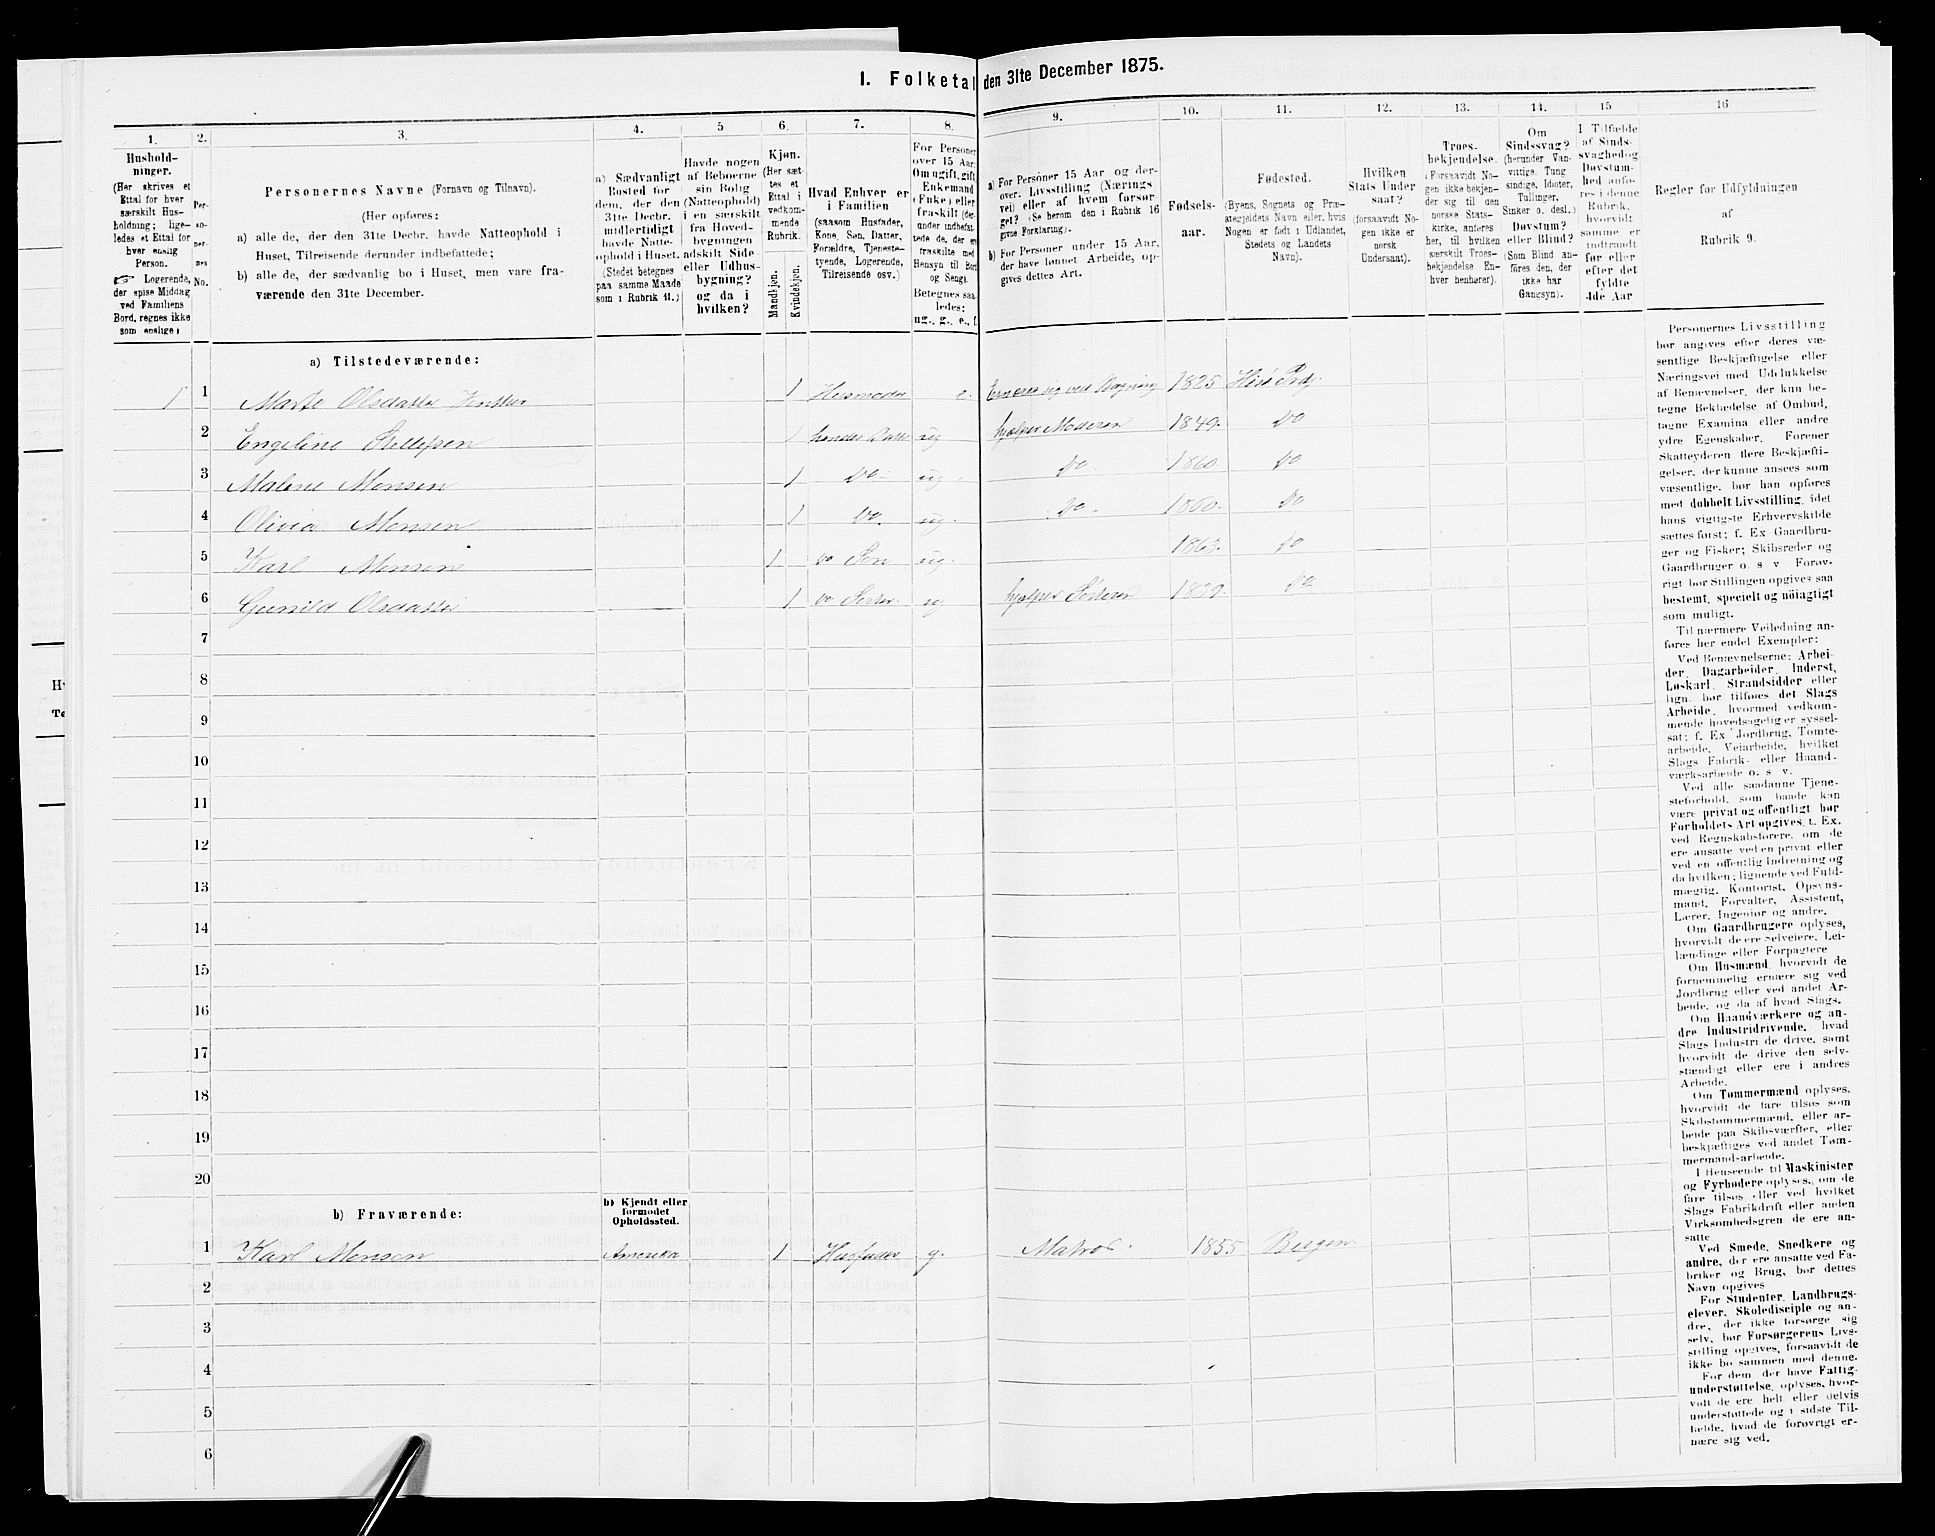 I. Folketal den 31te December 1875.
1. 2. 3. 4. 5 6. 7. 8. 9. 10. 11. 12. 13. 14. 15 16
Hushold-
ninger.
(Her skrives et
Ettal for hver
særskilt Hus-
holdning; lige-
ledes et Ettal for
hver enslig
Person.
☞ Logerende,
der spise Middag
ved Familiens
Bord, regnes ikke
som enslige)
Per-
so-
ner-
nes
No.
Personernes Navne (Fornavn og Tilnavn).
(Her opføres:
a) alle de, der den 31te Decbr. havde Natteophold i
Huset, Tilreisende derunder indbefattede;
b) alle de, der sædvanlig bo i Huset, men vare fra-
værende den 31te December.
a) Sædvanligt
Bosted for
dem, der den
31te Decbr.
midlertidigt
havde Natte-
ophold i Huset.
(Stedet betegnes
paa samme Maade
som i Rubrik 11.)
Havde nogen
af Beboerne
sin Bolig
(Natteophold)
i en særskilt
fra Hoved-
bygningen
adskilt Side-
eller Udhus-
bygning?
og da i
hvilken?
Kjøn.
(Her sæt-
tes et
Ettal i
vedkom-
mende
Rubrik.
Mandkjøn.
Kvindekjøn.
Hvad Enhver er
i Familien
(saasom Husfader,
Kone, Søn, Datter,
Forældre, Tjeneste-
tyende, Logerende,
Tilreisende osv.)
For Personer
over 15 Aar:
Om ugift, gift,
Enkemand
(Enke) eller
fraskilt (der-
under indbefat-
tede de, der ere
fraskilte med
Hensyn til Bord
og Seng).
Betegnes saa-
ledes:
ug., g., e., f.
a) For Personer 15 Aar og der-
over. Livsstilling (Nærings-
vei) eller af hvem forsør-
get? (Se herom den i Rubrik 16
givne Forklaring).
b) For Personer under 15 Aar,
der have lønnet Arbeide, op-
gives dettes Art.
Fødsels-
aar.
Fødested.
(Byens, Sognets og Præ-
stegjeldets Navn eller, hvis
Nogen er født i Udlandet,
Stedets og Landets
Navn).
Hvilken
Stats Under
saat?
(forsaavidt No-
gen ikke er
norsk
Undersaat).
Troes-
bekjendelse.
(Forsaavidt No-
gen ikke bekjen-
der sig til den
norske Stats-
kirke, anføres
her, til hvilken
særskilt Troes-
bekjendelse En-
hver henhører).
Om
Sindssvag?
(herunder Van-
vittige, Tung
sindige, Idioter,
Tullinger,
Sinker o. desl.)
Døvstum?
eller Blind?
(Som Blind an-
føres den, der
ikke har
Gangsyn).
I Tilfælde
af Sinds-
svaghed og
Døvstum-
hed anfø-
res i denne
Rubrik,
hvorvidt
samme er
indtraadt
før eller
efter det
fyldte
4de Aar
Regler for Udfyldningen
af
Rubrik 9.
a) Tilstedeværende:
1 1 Marte Olsdatter 1 Husmoder e. Ernærer sig ved 1825
2 Engeline 1 hendes Datter ug hjælper Moderen 1849. Do
3 Malene Monsen 1 Do ug. Do. 1860. Do
4 Olivia Monsen 1 Do. ug. Do. 1860. Do
5 Karl Monsen 1 Do Søn ug. 1863. Do
6 Gunild Olsdatter 1 Do Søster ug hjelper Søsteren 1829. Do
7
8
9
10
11
12
13
14
15
16
17
18
19
20
b) Fraværende:
b) Kjendt eller
formodet
Opholdssted.
1 Karl Monsen Amerika 1 Husfader g. Matros. 1855 Bergen.
2
3
4
5
6
Personernes Livsstilling
bør angives efter deres væ-
sentlige Beskjæftigelse eller
Næringsvei med Udelukkelse
af Benævnelser, der kun be-
tegne Beklædelse af Ombud,
tagne Examina eller andre
ydre Egenskaber. Forener
Skatteyderen flere Beskjæfti-
gelser, der kunne ansees som
væsentlige, bør han opføres
med dobbelt Livsstilling, idet
hans vigtigste Erhvervskilde
sættes først; f. Ex Gaardbru-
ger og Fisker; Skibsreder og
Gaardbruger o. s v Forøv-
rigt bør Stillingen opgives saa
bestemt, specielt og nöiagtigt
som muligt.
Til nærmere Veiledning an-
føres her endel Exempler:
Ved Benævnelserne: Arbei-
der, Dagarbeider, Inderst,
Løskarl, Strandsidder eller
lign. bør tilføies det Slags
Arbeide, hvormed vedkom-
mende hovedsagelig er syssel-
sat; f. Ex Jordbrug, Tomte-
arbeide, Veiarbeide, hvilket
Slags Fabrik- eller Haand-
værksarbeide o. s v.
Ved alle saadanne Tjene-
steforhold, som baade kan
være privat og offentligt bør
Forholdets Art opgives, t. Ex.
ved Regnskabsførere, om de
ere ansatte ved en privat eller
ved en offentlig Indretning og
da hvilken; lignende ved Fuld-
mægtig, Kontorist, Opsyns-
mand, Forvalter, Assistent,
Lærer, Ingeniør og andre.
Om Gaardbrugere oplyses,
hvorvidt de ere Selveiere, Lei-
lændinge eller Forpagtere
Om Husmænd, hvorvidt de
fornemmelig ernære sig ved
Jordbrug eller ved andet Ar-
beide, og da af hvad Slags.
Om Haandværkere og an-
dre Industridrivende, hvad
Slags Industri de drive, samt
hvorvidt de drive den selv-
stændigt eller ere i andres
Arbeide.
Om Tømmermænd oplyses,
hvorvidt de fare tilsøs som
Skibstømmermænd, eller ar-
beide paa Skibsværfter, eller
beskjæftiges ved andet Tøm-
mermandsarbeide.
I Henseende til Maskinister
og Fyrbødere oplyses, om de
fare tilsøs eller ved hvilket
Slags Fabrikdrift eller anden
Virksomhedsgren de ere an-
satte
Ved Smede, Snedkere og
andre, der ere ansatte ved Fa-
briker og Brug, bør dettes
Navn opgives
For Studenter, Landbrugs-
elever, Skoledisciple og an-
dre, der ikke forsørge sig
selv, bør Forsørgerens Livs-
stilling opgives, forsaavidt de
ikke bo sammen med denne.
For dem, der have Fattig-
understøttelse, oplyses, hvor-
vidt de ere helt eller delvis
understøttede og i sidste Til-
fælde, hvad de forøvrigt er-
nære sig ved.